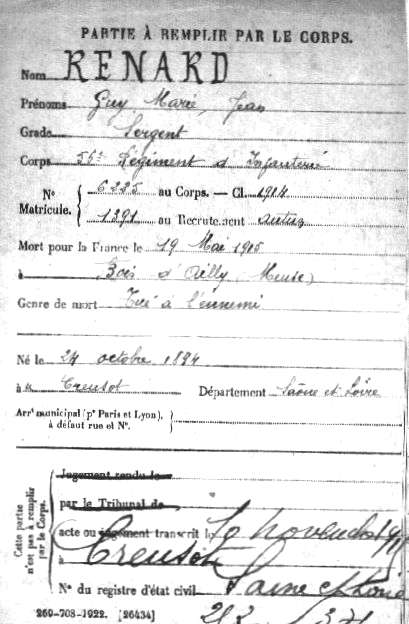 PARTIE À REMPLIR PAR LE CORPS.
Nom RENARD
Prénoms Guy Marie, Jean
Grade Sergent
Corps 56e Régiment d'Infanterie
N° Matricule. { 6225 au Corps. — Cl. 1914
1391 au Recrutement Autun
Mort pour la France le 19 Mai 1915
à Bois d'Ailly (Meuse)
Genre de mort Tué à l'ennemi
Né le 24 octobre 1894
à u Creusot Département Saône et Loire
Arrt municipal (pr Paris et Lyon), à défaut rue et N°.
Cette partie n'est pas à remplir par le Corps.
Jugement rendu le
par le Tribunal de
acte ou jugement transcrit le novembre
à Creusot
Saône et Loire
N° du registre d'état civil
269-708-1922. [26434]